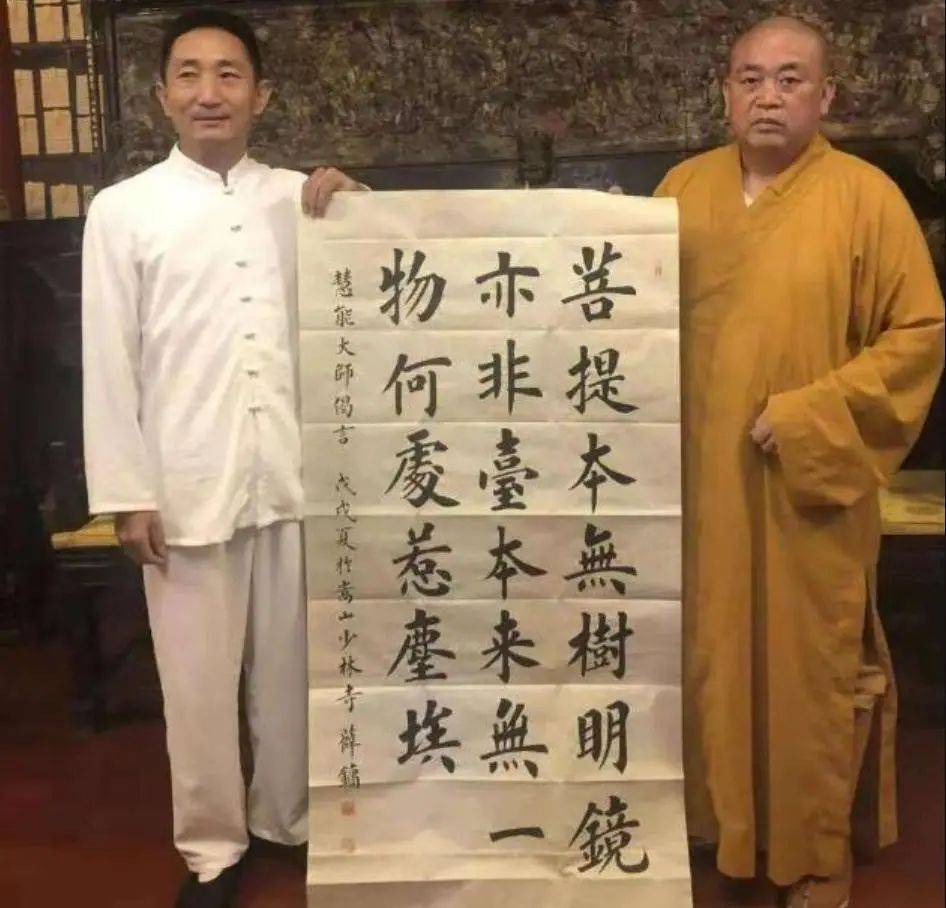 菩提本無樹明鏡
亦非臺本来無一
物何處惹塵埃
慧能大師偈言 戊戌夏於嵩山少林寺 薛鏞